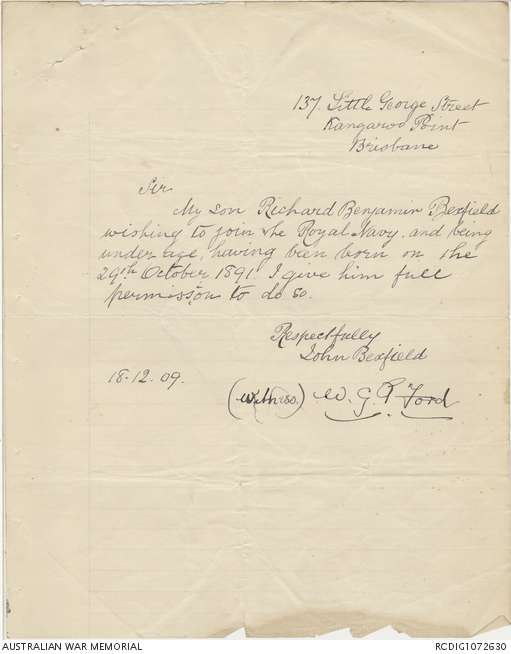 137 Little George Street
Kangaroo Point
Brisbane
Sir
My son Richard Benjamin Bexfield
wishing to join the Royal Navy. and being
under age, having been born on the
29th October 1891. I give him full
permission to do so.
Respectfully
John Bexfield
18-12-09.
(Witness.) W. G. R. Ford
AUSTRALIAN WAR MEMORIAL
RCDIG1072630